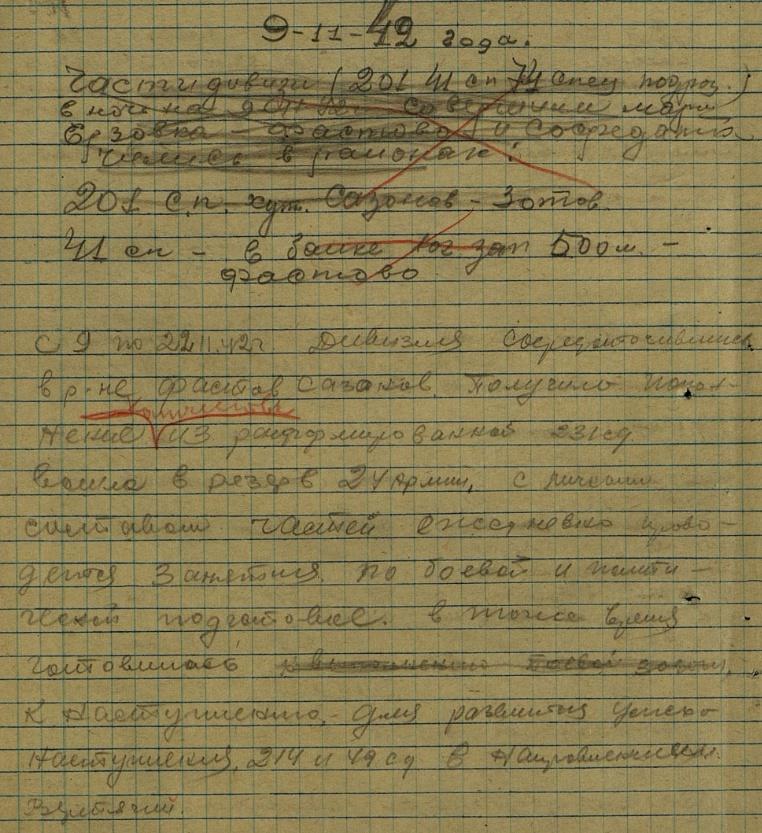 9-11-42 года.
Части дивизии (201 41 сп 74 спец подраз.)
в ночь на 9.11.42г. совершили марш
Ерзовка - Фастово и сосредото
чились в районах:
201 с.п. хут. Сазонов - Зотов
41 сп - в балке юг зап 500 м. -
Фастово
С 9 по 22.11.42г. Дивизия сосредоточившись
в р-не Фастов Сазонов. Получила попол-
нение из расформированной 231 сд
вошла в резерв 24 Армии, с личным
составом частей ежедневно прово-
дятся занятия по боевой и полити-
ческой подготовке. в тоже время
готовилась к выполнению боевой задачи,
к наступлению, - для развития успеха
наступления 214 и 49 сд в направлении
Вертячий.